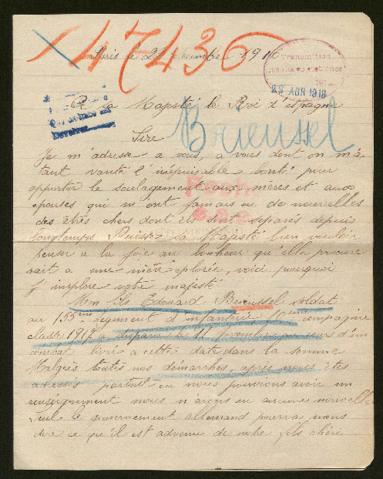 47436
Paris le 1916
A sa Majesté le Roi d'Espagne
29 ABR 1918
Sire
Brieussel
Je m'adresse a vous, a vous dont on m'a
tant vanté l'inépuisable bonté pour
apporter le soulagement aux mères et aux
épouses qui n'ont jamais eu de nouvelles
des êtres chers dont ils sont séparés depuis
longtemps Puisse sa Majesté bien vouloir
penser a la joie au bonheur que elle procure
rait a une mère éplorée, voici pourquoi
j'implore votre majesté
Mon fils Edouard Brieussel soldat
au régiment d'infanterie compagnie
classe 1917 a disparu le
livré a cette date dans la Somme
Malgré toutes nos démarches après nous être
adressés partout ou nous pouvions avoir un
renseignement nous n'avons eu aucunes nouvelles
seul le gouvernement allemand pourra nous
dire ce qu'il est advenu de notre fils chéri